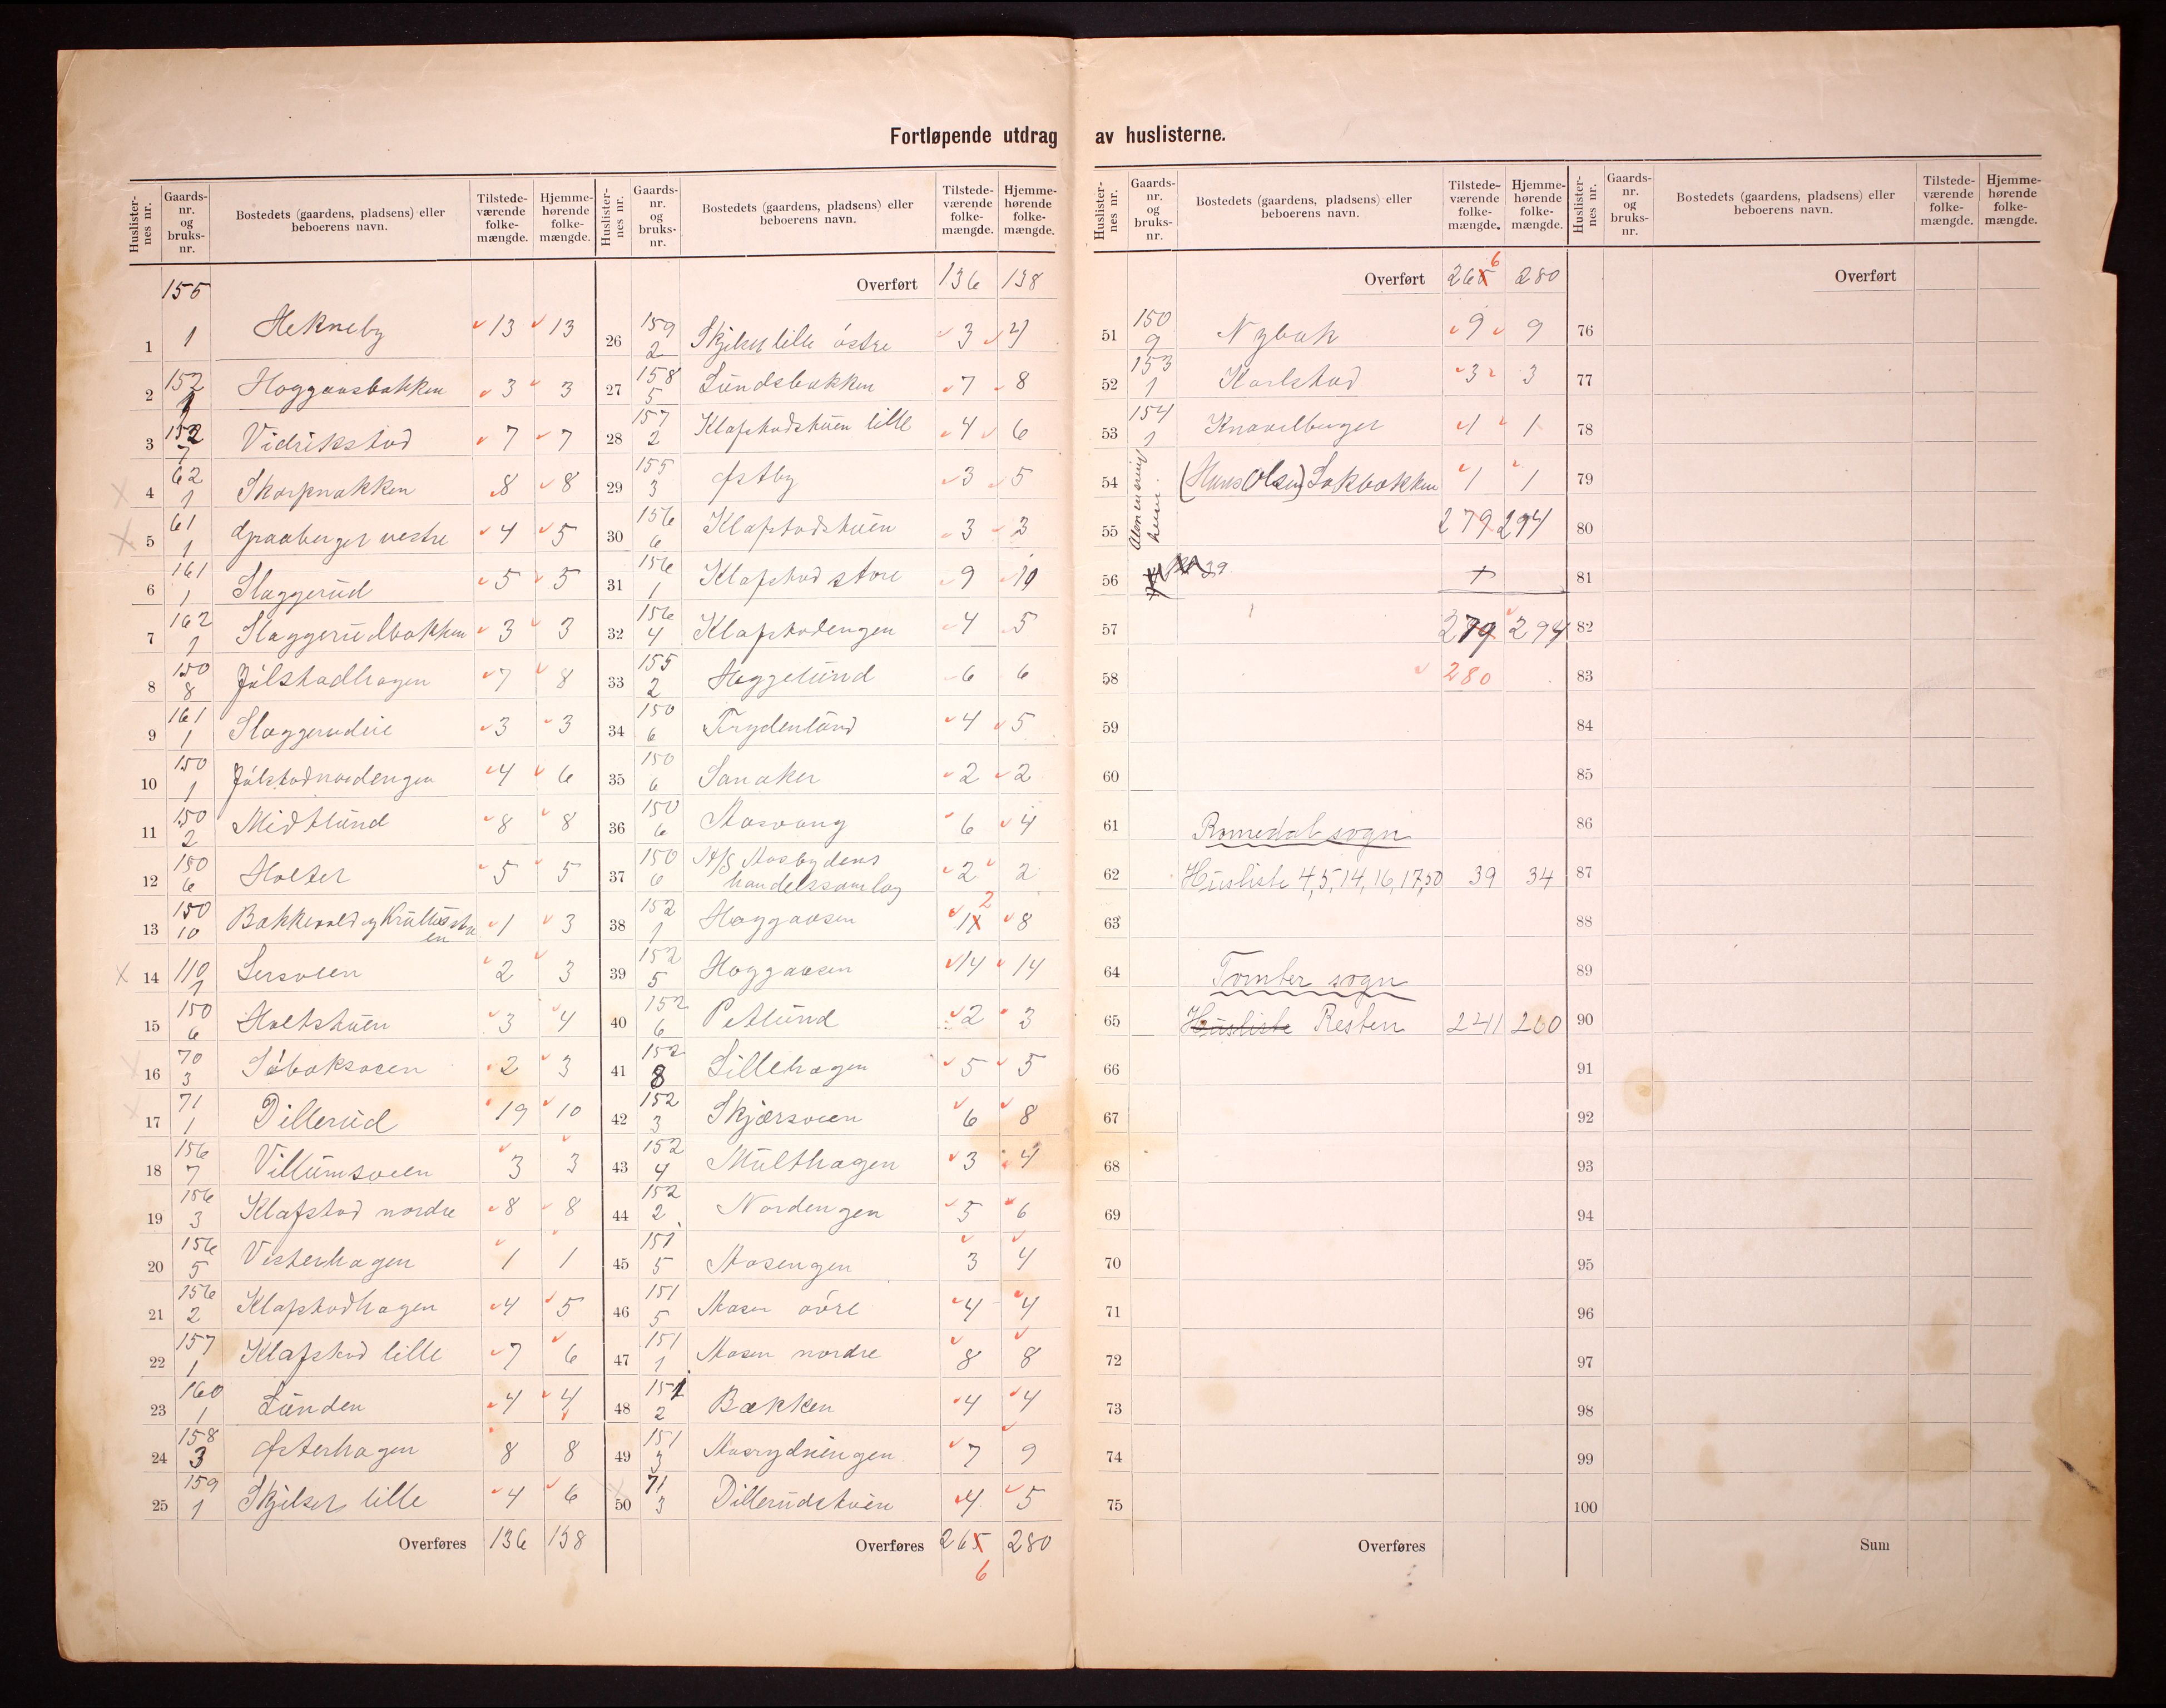 Fortløpende utdrag av huslisterne.
Huslister-nes nr. Gaards-nr. og bruks-nr. Bostedets (gaardens, pladsens) eller beboerens navn. Tilstede-værende folke-mængde. Hjemme-hørende folke-mængde.
155
1 1 Hekneby 13 13
2 152 Hoggaasbakken 3 3
3 152 7 Vidrikstad 7 7
4 62 1 Skarpnakken 8 8
5 61 1 Graaberget vestre 4 5
6 161 1 Slaggerud 5 5
7 162 1 Slaggerudbakken 3 3
8 150 8 Jølstadhagen 7 8
9 161 1 Slaggerudeie 3 3
10 150 1 Jølstadnordengen 4 6
11 150 2 Midtlund 8 8
12 150 6 Holter 5 5
13 150 10 1 3
14 110 1 Lersveen 2 3
15 150 6 Holtstuen 3 4
16 70 3 Søbaksveen 2 3
17 71 1 Dillerud 19 10
18 156 7 Villumsveen 3 3
19 156 3 Klafstad nordre 8 8
20 156 5 Vesterhagen 1 1
21 156 2 Klafstadhagen 4 5
22 157 1 Klafstad lille 7 6
23 160 1 Lunden 4 4
24 158 3 Østerhagen 8 8
25 159 1 Skjelset lille 4 6
Overføres 136 138
Huslister-nes nr. Gaards-nr. og bruks-nr. Bostedets (gaardens, pladsens) eller beboerens navn. Tilstede-værende folke-mængde. Hjemme-hørende folke-mængde.
Overført 136 138
26 159 2 Skjelset lille østre 3 4
27 158 5 Lundsbakken 7 8
28 157 2 Klafstadstuen lille 4 6
29 155 3 Østby 3 5
30 156 6 Klafstadstuen 3 3
31 156 1 Klafstad store 9 10
32 156 4 Klafstadengen 4 5
33 155 2 Heggelund 6 6
34 150 6 Frydenlund 4 5
35 150 6 Sanaker 2 2
36 150 6 Aasvang 6 4
37 150 6 A/S Aasbygdens handelssamlag 2 2
38 152 1 Hoggaasen 12 8
39 152 5 Hoggaasen 14 14
40 152 6 Petlund 2 3
41 152 8 Lillehagen 5 5
42 152 3 Skjærsveen 6 8
43 152 4 Multhagen 3 4
44 152 2 Nordengen 5 6
45 151 5 Aasengen 3 4
46 151 5 Aasen øvre 4 4
47 151 1 Aasen nordre 8 8
48 151 2 Bækken 4 4
49 151 3 Aasrydningen 7 9
50 71 3 Dillerudstuen 4 5
Overføres 265 280
6
Huslister-nes nr. Gaards-nr. og bruks-nr. Bostedets (gaardens, pladsens) eller beboerens navn. Tilstede-værende folke-mængde. Hjemme-hørende folke-mængde.
Overført 265 6 280
51 150 9 Nybak 9 9
52 153 1 Karlstad 3 3
53 154 1 Knavelberget 1 1
54 (Hans Olsen) Lakbakken 1 1
55 279 294
56
57 279 294
58 280
59
60
61 Romedal sogn
62 Husliste 4, 5, 14, 16, 17, 50 39 34
63
64 Tomter sogn
65 Husliste Resten 241 260
66
67
68
69
70
71
72
73
74
75
Overføres
Huslister-nes nr. Gaards-nr. og bruks-nr. Bostedets (gaardens, pladsens) eller beboerens navn. Tilstede-værende folke-mængde. Hjemme-hørende folke-mængde.
Overført
76
77
78
79
80
81
82
83
84
85
86
87
88
89
90
91
92
93
94
95
96
97
98
99
100
Sum